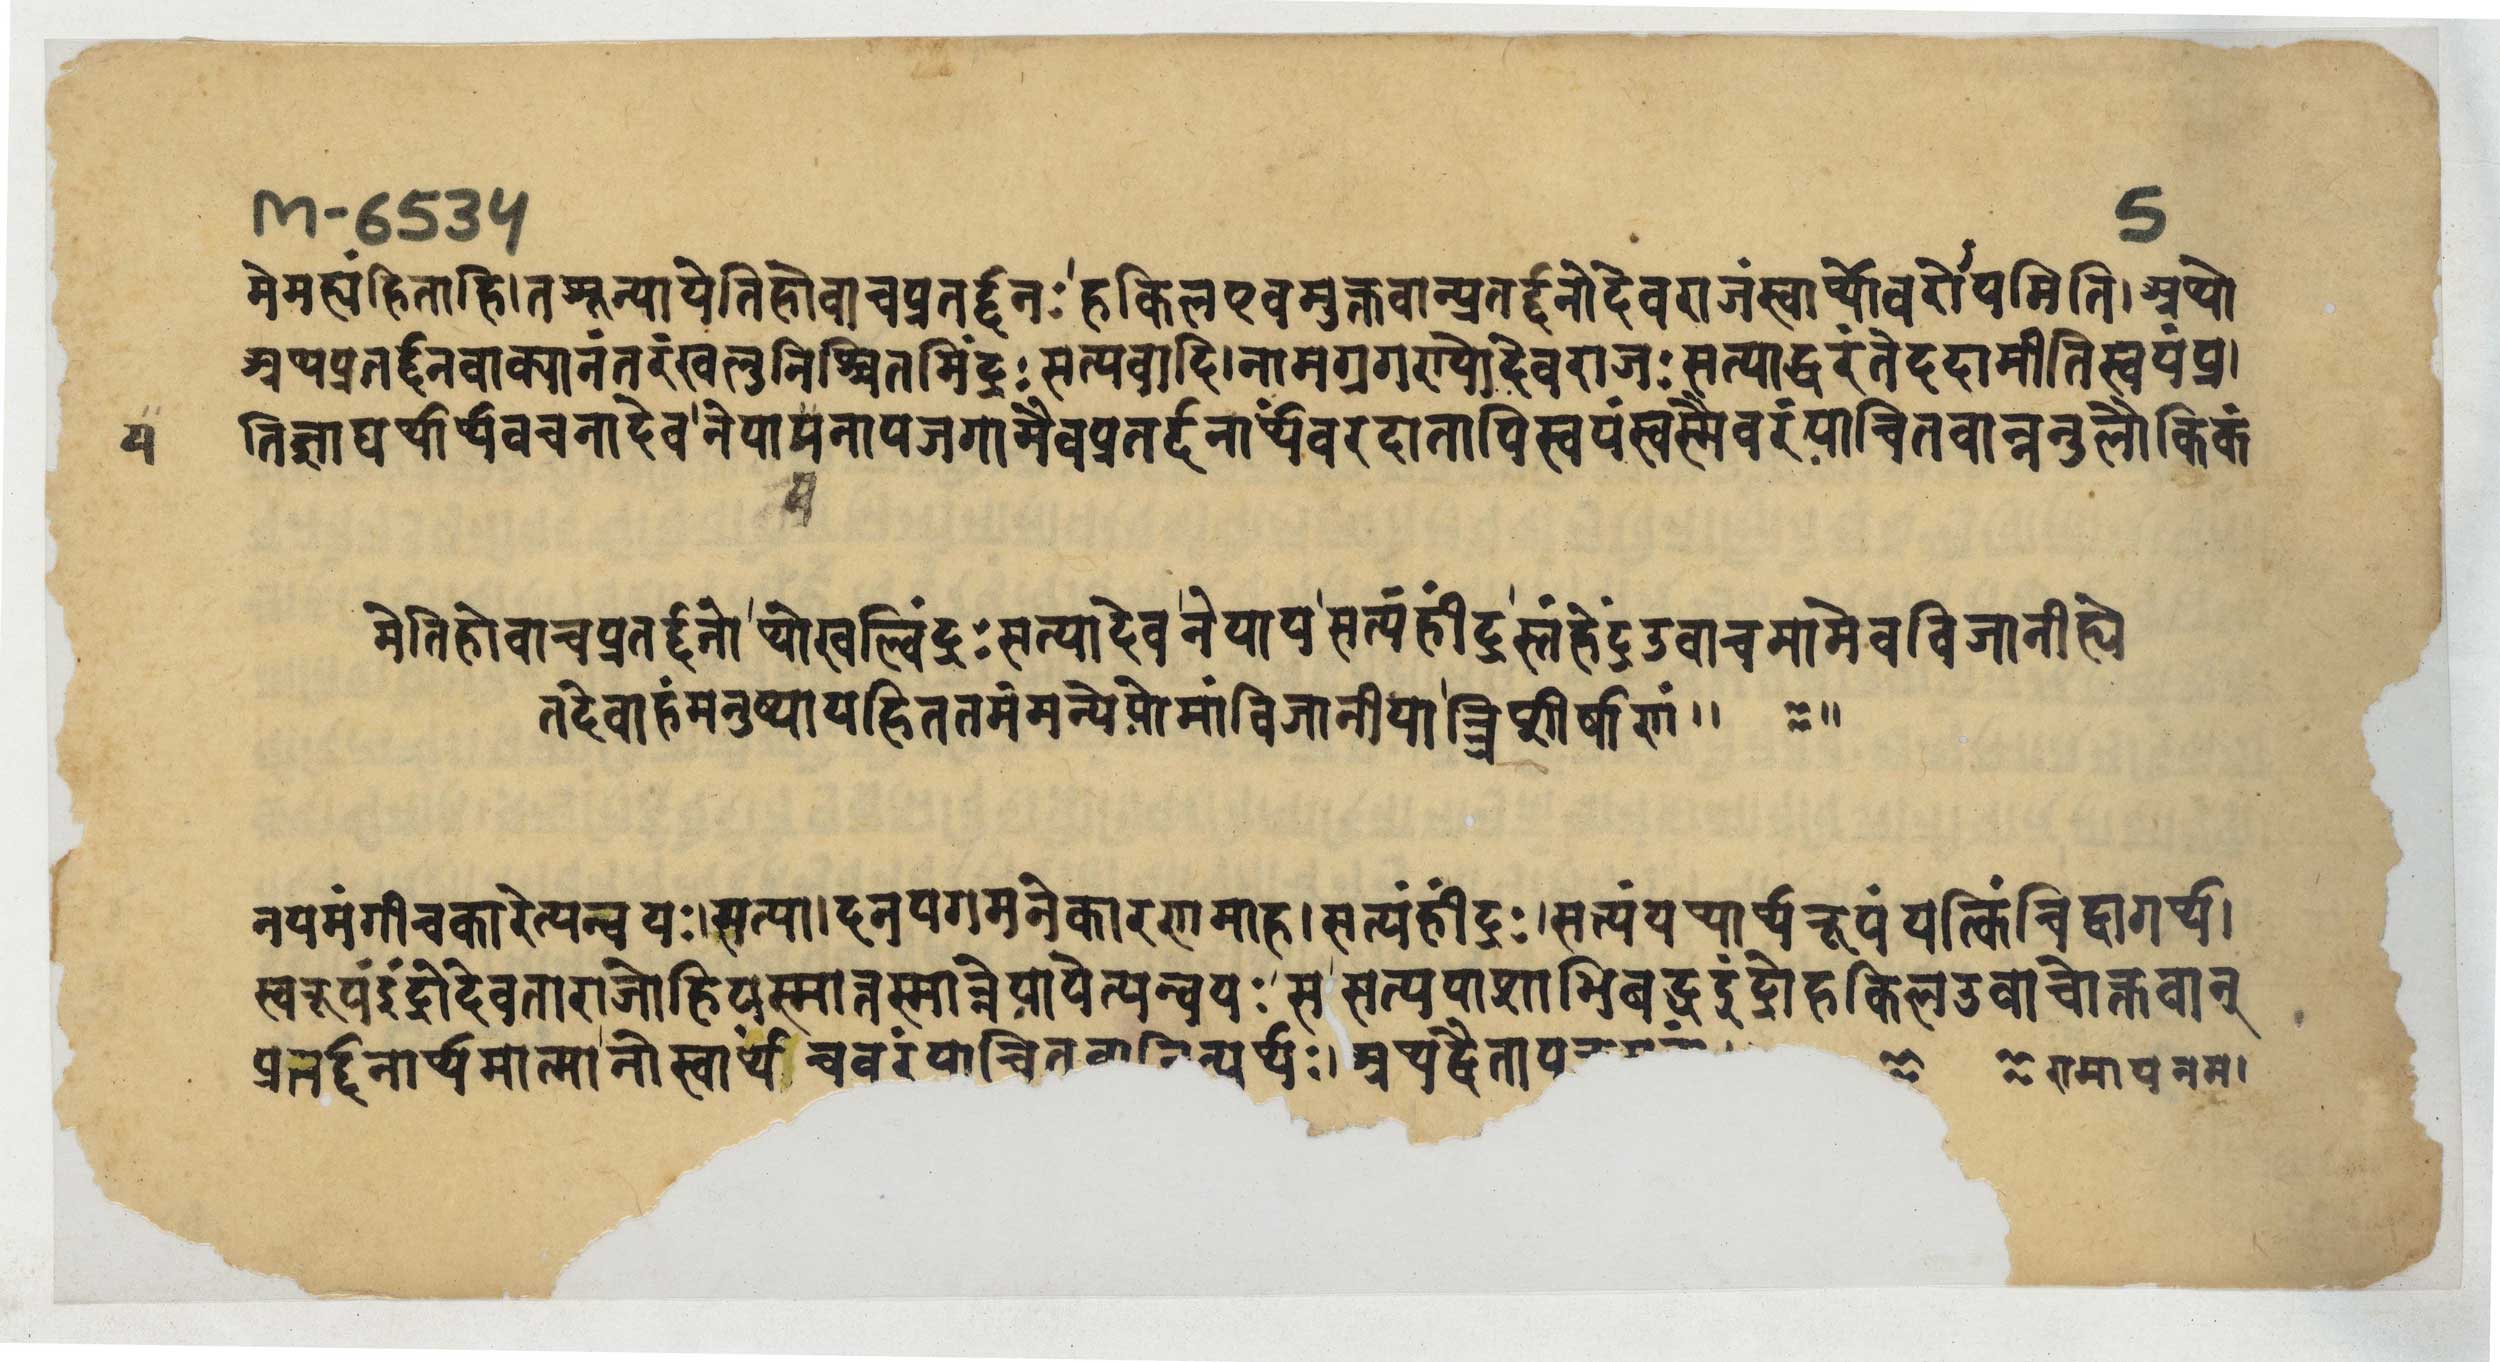 M-6534
5
मेमह्यंहिताहि।तत्र्प्नून्यायेतिहोवाचप्रतर्द्दनः'हकिलएवमुक्तवान्प्रतर्द्दनोदेवराजंस्वार्थोवरोऽयमिति।अथो
अथप्रतर्द्दनवाक्यानंतरंखलुनिश्चितमिंद्रःसत्यवादि।नामग्रगण्योदेवराजःसत्याद्वरंतेददामीतिस्वयंप्र।
य
तिज्ञाघथार्थवचनादेव'नेयायनापजगामैवप्रतर्द्दनार्थंवरदातापिस्वयंस्वस्मैवरंयाचितवान्ननुलौकिकं
य
मेतिहोवाचप्रतर्द्दनो'थोखल्विंद्रःसत्यादेव'नेयाय'सत्यंहींद्र'स्तंहेंद्रउवाचमामेवविजानीह्ये
तदेवाहंमनुष्यायहिततमंमन्येयोमांविजानीया'त्त्रिशीर्षाणं॥
नयमंगीचकारेत्यन्वयः।सत्या।दनपगमनेकारणमाह।सत्यंहींद्रः।सत्यंयथार्थरूपंयत्किंचिद्वागर्थ।
स्वरूपंइंद्रोदेवताराजोहियस्मात्तस्मान्नेयायेत्यन्वयः'स'सत्यपाशाभिबद्धइंद्रोहकिलउवाचोक्तवान्
प्रतर्द्दनार्थमात्मा'नोस्वार्थंचवरंयाचितवानित्यर्थः।अथद्वैताप णमापनम।